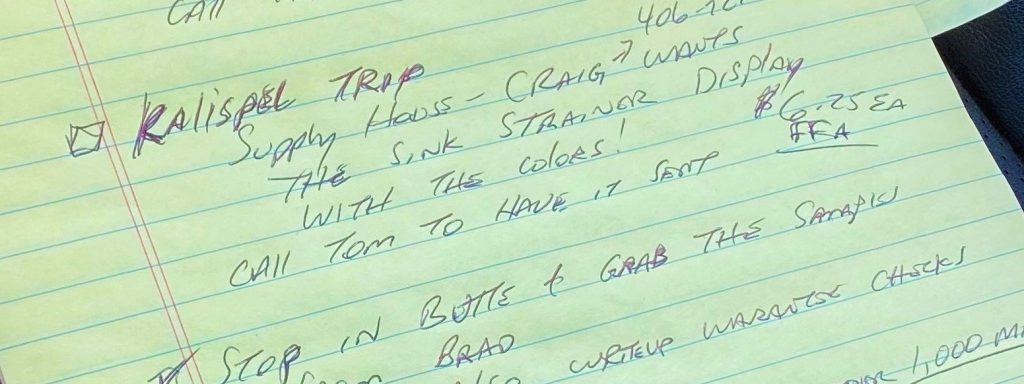 CALL
406-
KALISPEL TRIP
SUPPLY HOUSE - CRAIG → WANTS
THE SINK STRAINER DISPLAY
WITH THE COLORS! $6.25 EA
FFA
CALL TOM TO HAVE IT SENT
STOP IN BUTTE & GRAB THE SAMPLE
FROM BRAD
WRITEUP CHECKS
1,000